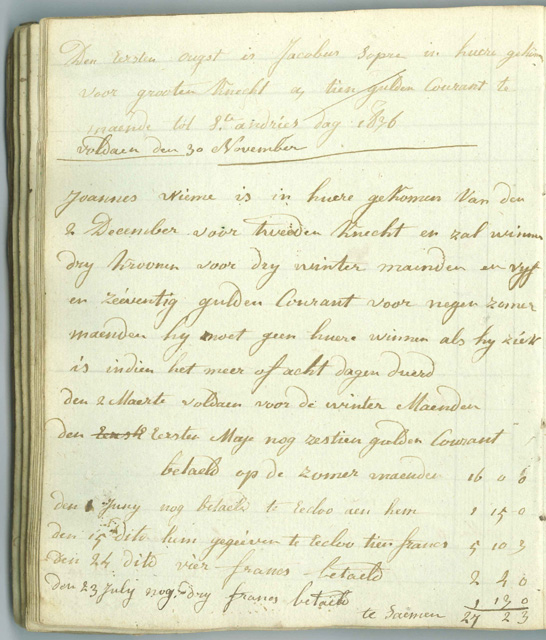 Den Eersten ougst is Jacobus Sopre in huere gekom
voor grooten Knecht a tien gulden Courant te
maende tot Ste andries dag 1836
voldaen den 30 November
Joannes Wieme is in huere gekomen Van den
2 December voor tweeden Knecht en zal winnen
dry kroonen voor dry winter mainden en vyf
en zeeventig gulden Courant voor negen zomer
maenden hy moet geen huere winnen als hy ziek
is indien het meer of acht dagen duerd
den 2 Maerte voldaen voor de winter Maenden
den Eersten Maje nog zestien gulden Courant
betaeld op de zomer maenden 16 0 6
den 1 Juny nog betaeld te Eecloo aen hem 1 15 0
den 15 dito hem gegeven te Eecloo tien francs 5 10 3
den 24 dito vier francs betaeld 2 4 0
den 23 July nog dry francs betaeld 1 13 0
te saemen 27 2 3